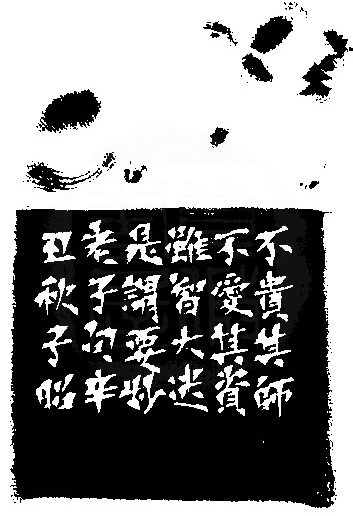 不貴其師
不愛其資
雖智大迷
是謂要妙
老子句辛
丑秋子昭